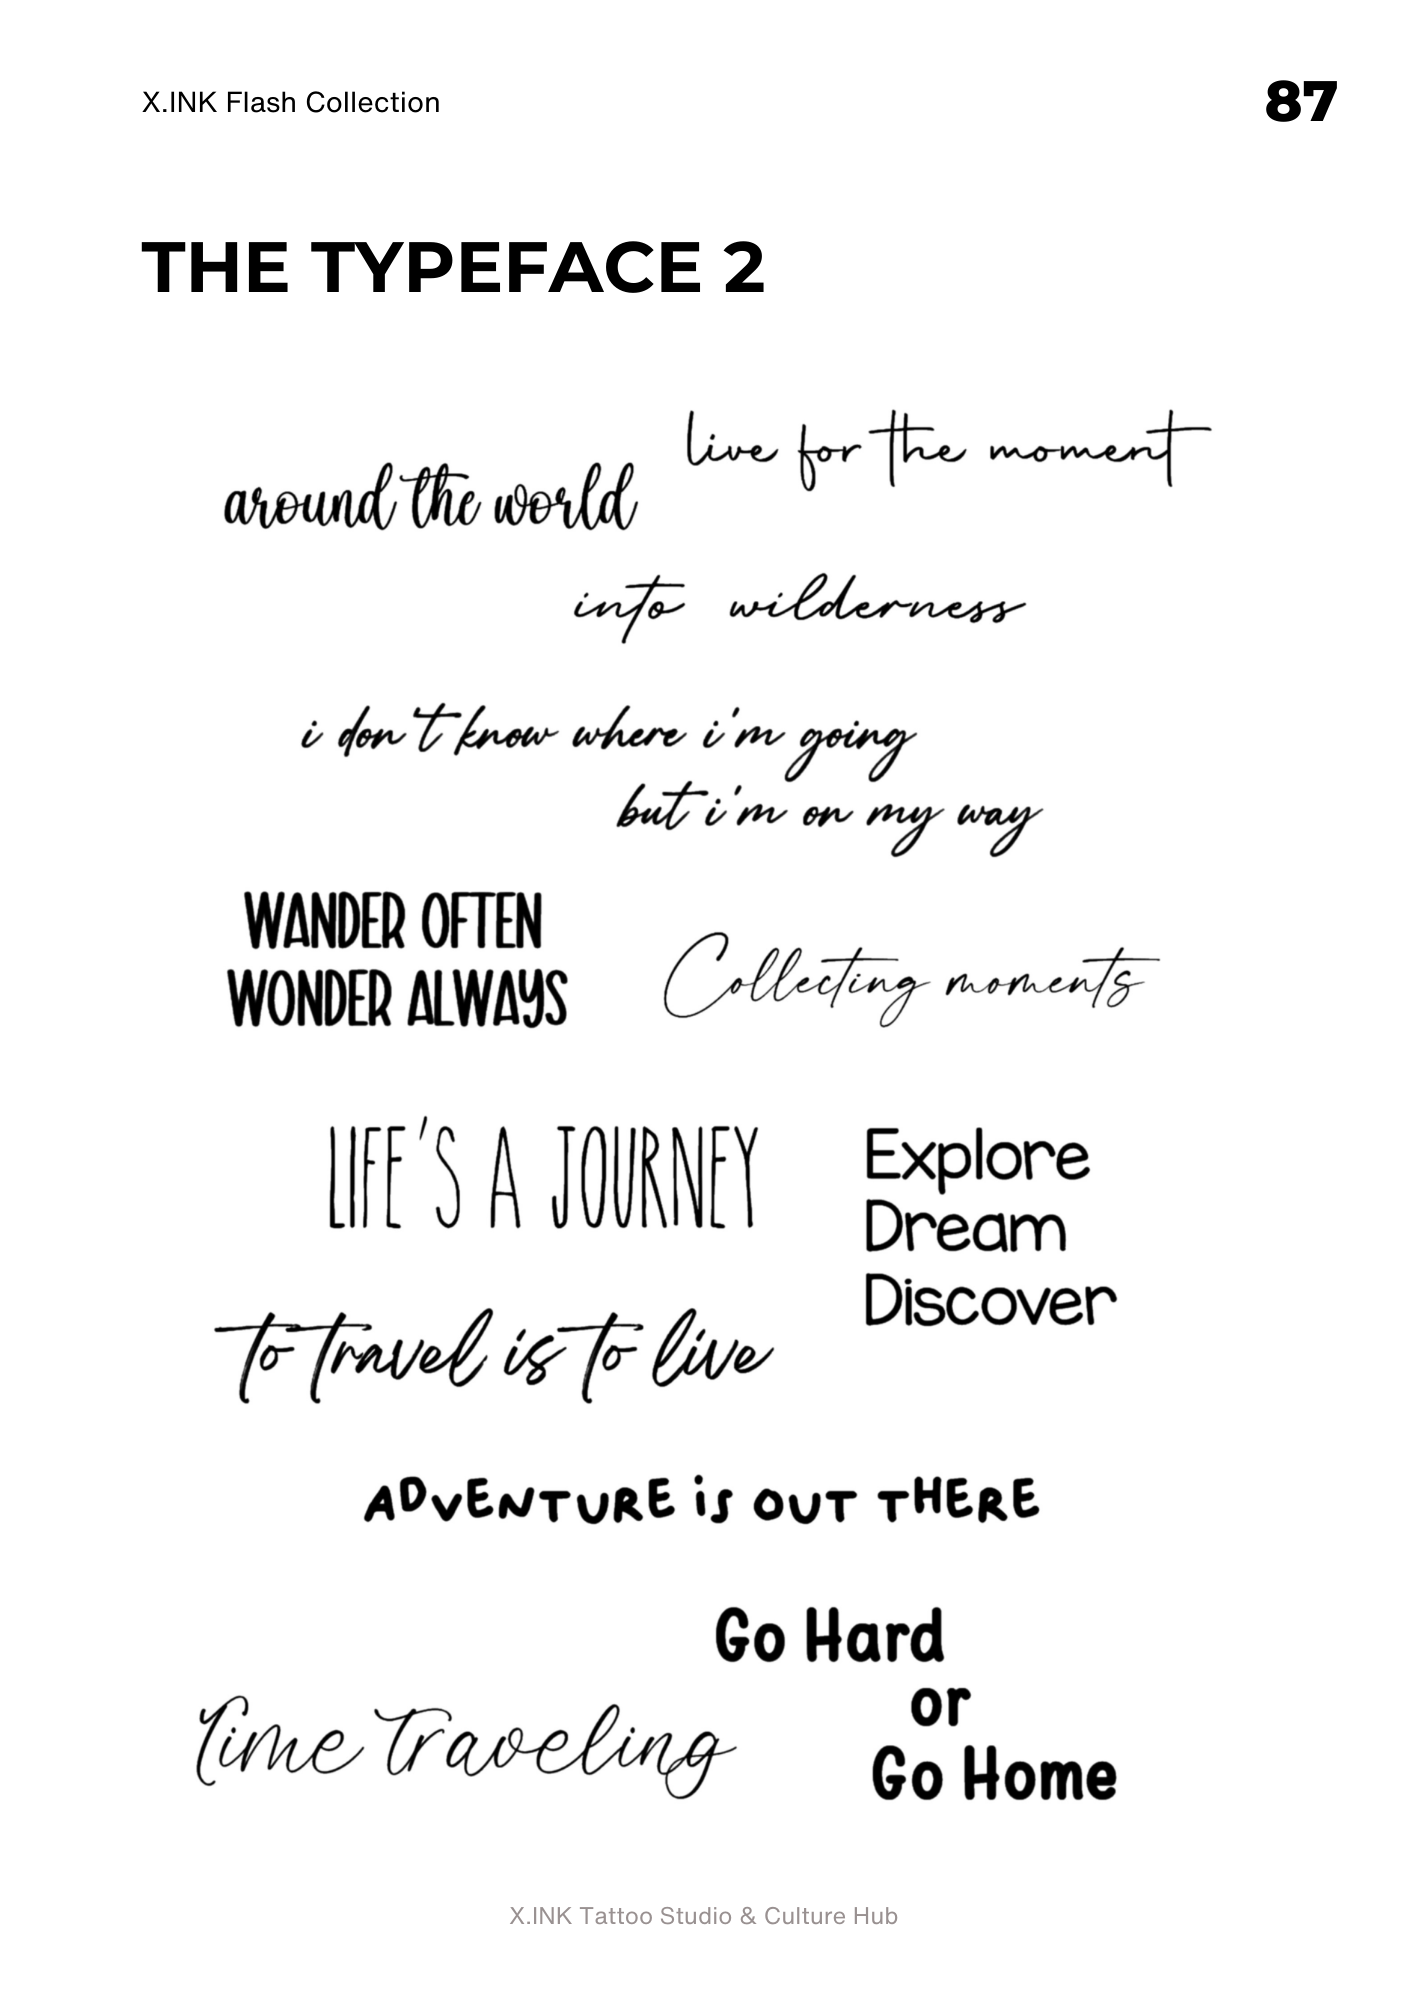 X.INK Flash Collection
87
THE TYPEFACE 2
live for the moment
around the world
into wilderness
i don't know where i'm going
but i'm on my way
WANDER OFTEN
WONDER ALWAYS
Collecting moments
LIFE'S A JOURNEY
Explore
Dream
Discover
to travel is to live
ADVENTURE iS OUT THERE
Go Hard
or
Go Home
Time Traveling
X.INK Tattoo Studio & Culture Hub